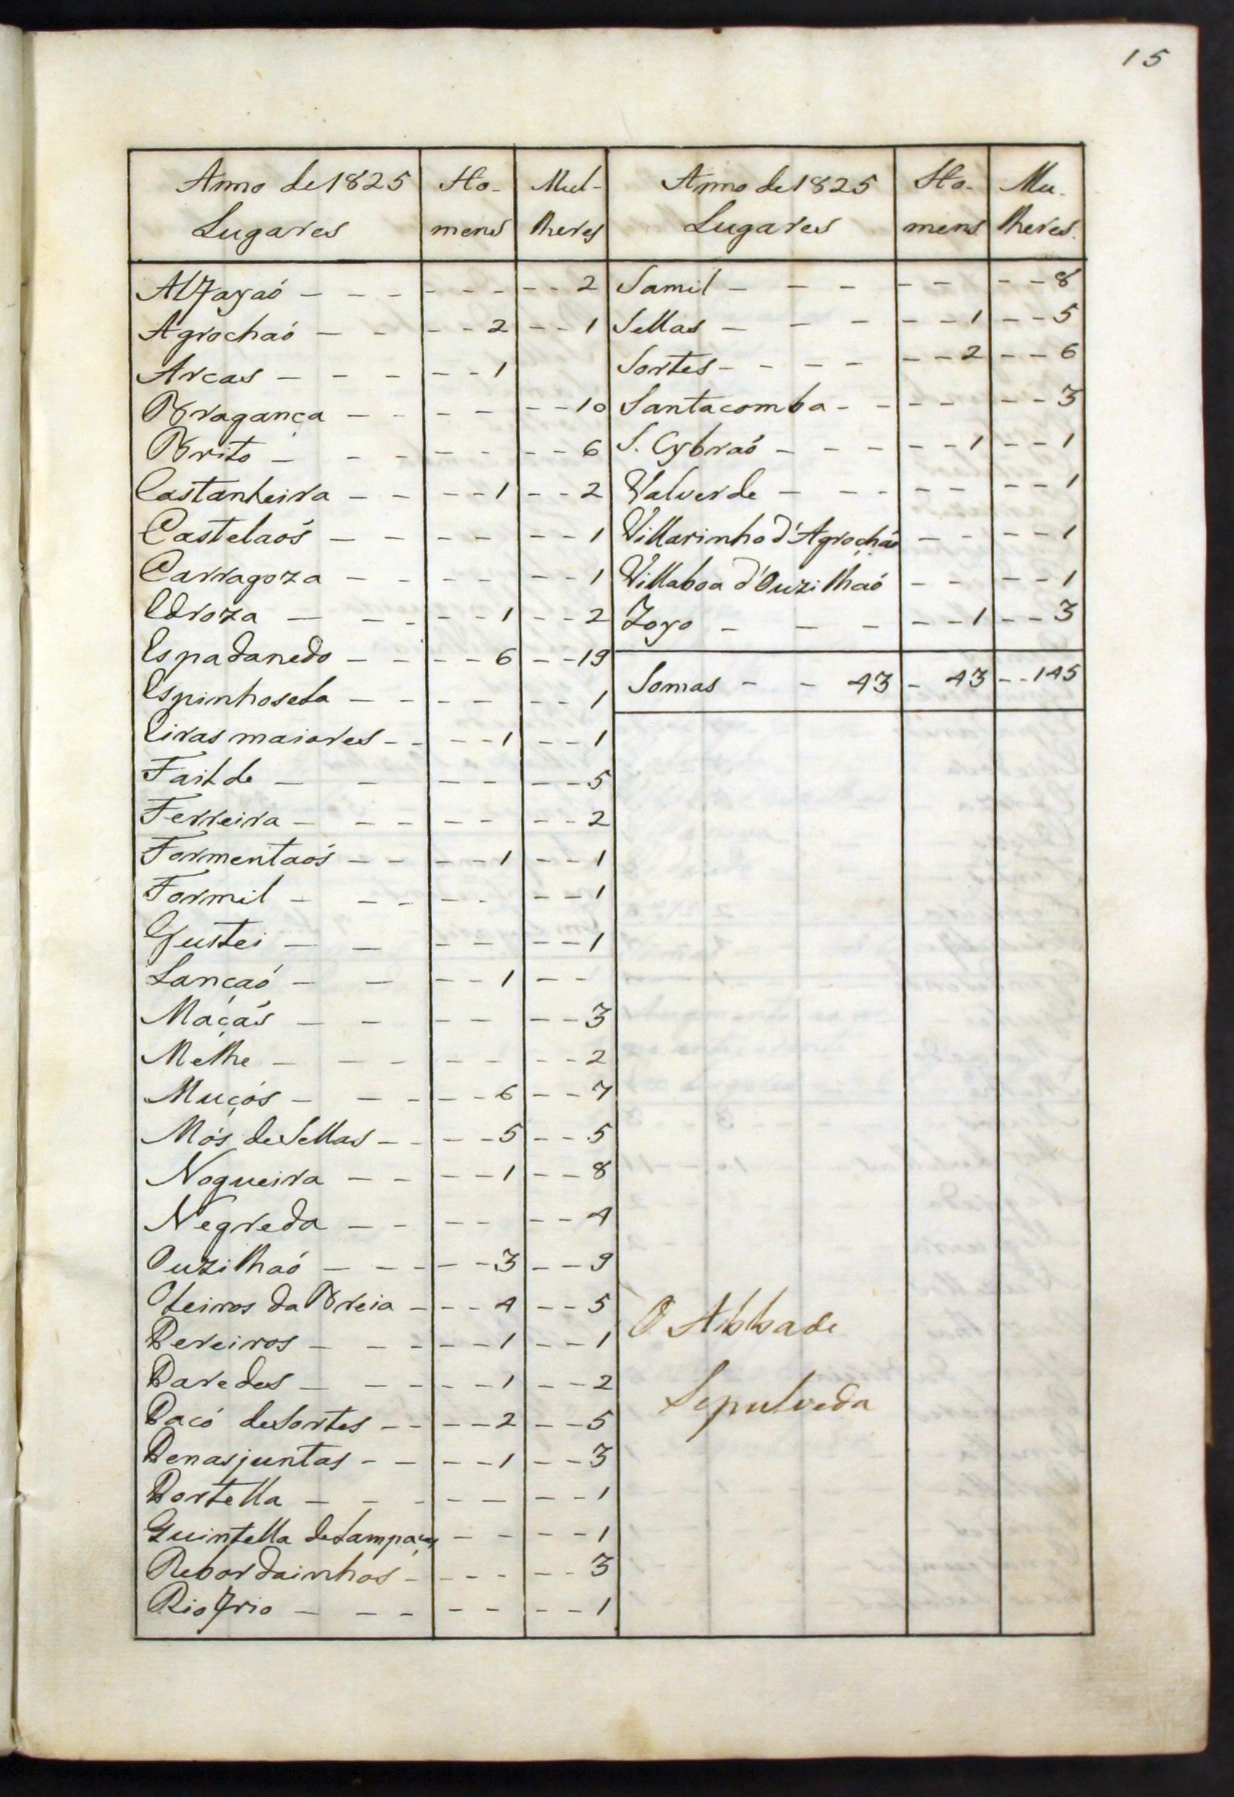 15
Anno de 1825 Ho- Mul-
Lugares mens lheres
Alfayaó - - - - - - - - 2
Agrochaó - - - - 2 - - 1
Arcas - - - - - 1
Bragança - - - - - - 10
Brito - - - - - - - 6
Castanheira - - - - 1 - - 2
Castelaós - - - - - - - 1
Carragoza - - - - - - - 1
Edroza - - - - - 1 - - 2
Espadanedo - - - - 6 - - 19
Espinhosela - - - - - - 1
Eiras maiores - - - - 1 - - 1
Failde - - - - - - - 5
Ferreira - - - - - - - 2
Formentaós - - - - 1 - - 1
Formil - - - - - - - 1
Gustei - - - - - - 1
Lançaó - - - - 1 - -
Maçás - - - - - - 3
Melhe - - - - - - - 2
Muçós - - - - - 6 - - 7
Mós de Sellas - - - - 5 - - 5
Nogueira - - - - 1 - - 8
Negreda - - - - - - 4
Ouzilhaó - - - - - 3 - - 9
Oteiros da Breia - - - 4 - - 5
Pereiros - - - - - 1 - - 1
Paredes - - - - - 1 - - 2
Pacó de Sortes - - - - 2 - - 5
Penasjuntas - - - - 1 - - 3
Portella - - - - - - - 1
Quintella de Lampaças - - - - 1
Rebordainhos - - - - - - 3
Rio frio - - - - - - - 1
Anno de 1825 Ho- Mu-
Lugares mens lheres.
Samil - - - - - - - 8
Sellas - - - - - 1 - - 5
Sortes - - - - - - 2 - - 6
Santacomba - - - - - - 3
S. Cybraó - - - - - 1 - - 1
Valverde - - - - - - - 1
Villarinho d'Agrochaó - - - - 1
Villaboa d'Ouzilhaó - - - - 1
Zoyo - - - - - 1 - - 3
Somas - - 43 - 43 - - 145
O Abbade
Sepulveda